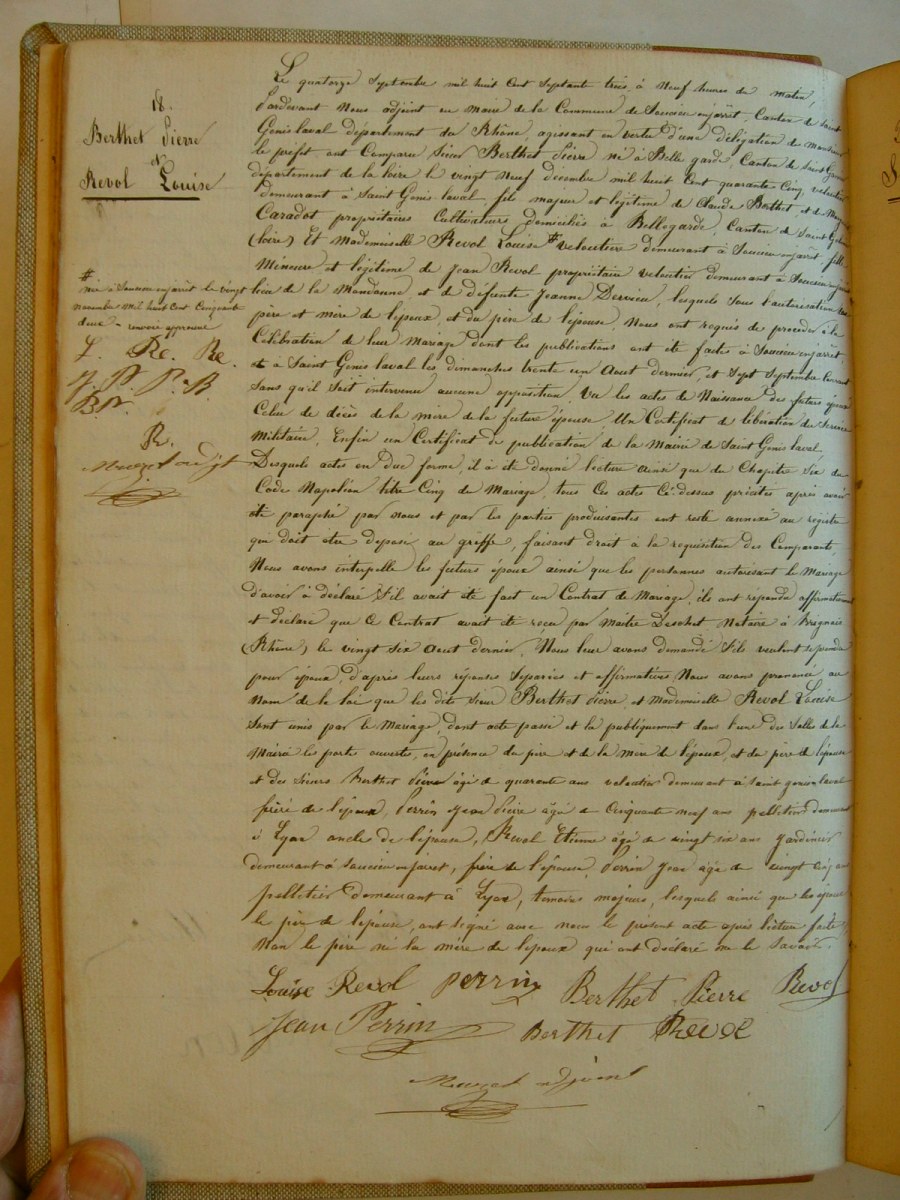 18.
Berthet Pierre
et
Revol Louise
Le quatorze Septembre mil huit cent septante trois, à Neuf heures du matin,
Pardevant Nous adjoint au Maire de la Commune de Soucieu enjarrêt, Canton de Saint
Genis laval département du Rhône, agissant en vertu d'une délégation de monsieur
le préfet, ont Comparu Sieur Berthet Pierre né à Belle garde, Canton de Saint
département de la loire le vingt Neuf décembre mil huit Cent quarante Cinq, veloutier
demeurant à Saint Genis laval, fils majeur et légitime de Claude Berthet et de
Caradot propriétaires Cultivateurs Domiciliés à Bellegarde, Canton de Saint
(loire) Et Mademoiselle Revol Louise # veloutière demeurant à Soucieu enjarrêt, fille
Mineure et légitime de Jean Revol propriétaire veloutier demeurant à Soucieu enjarrêt
lieu de la et de défunte Jeanne Dervieu, lesquels sous l'autorisation des
père et mère de l'époux, et du père de l'épouse, Nous ont requis de procéder à la
Célébration de leur Mariage dont les publications ont été faites à Soucieu enjarrêt,
et à Saint Genis laval les dimanches trente un Aout dernier, et Sept Septembre Courant
Sans qu'il soit intervenu aucune opposition, Vu les actes de Naissance des futurs époux
Celui de décès de la mère de la future épouse, Un Certificat de libération du Service
Militaire, Enfin un Certificat de publication de la Mairie de Saint Genis laval,
Desquels actes en Due forme, il a été donné lecture ainsi que du Chapitre Six du
Code Napoléon titre Cinq du Mariage, tous Ces actes Ci-dessus précités après avoir
été paraphé par nous et par les parties produisantes ont resté annexé au registre
qui doit etre déposé au greffe, faisant droit à la réquisition des Comparants,
Nous avons interpellé les futurs époux ainsi que les personnes autorisant le Mariage
d'avoir à déclaré s'il avait été fait un Contrat de Mariage, ils ont répondu affirmativement
et déclaré que Ce Contrat avait été reçu par Maître Notaire à
(Rhône) le vingt six Aout dernier, Nous leur avons demandé s'ils veulent se prendre
pour époux, d'après leurs réponses Séparées et affirmatives Nous avons prononcé au
Nom de la loi que les dits Sieur Berthet Pierre, et Mademoiselle Revol Louise
Sont unis par le Mariage, dont acte passé et lu publiquement dans l'une des Salles de la
Mairie les portes ouvertes, en présence du père et de la Mère de l'époux, et du père de l'épouse
et des Sieurs Berthet âgé de quarante ans veloutier demeurant à Saint genis laval
frère de l'époux, Perrin Jean Pierre âgé de Cinquante neuf ans pelletier demeurant
à Lyon oncle de l'épouse, Revol Etienne âgé de vingt six ans jardinier
demeurant à Soucieu enjarret, frère de l'épouse Perrin Jean âgé de vingt cinq ans
pelletier demeurant à Lyon, témoins majeurs, lesquels ainsi que les époux
le père de l'épouse, ont signé avec nous le présent acte après lecture faite
Non le père ni la mère de l'époux qui ont déclaré ne le savoir.
#
née à Soucieu enjarrêt le vingt
novembre mil huit cent Cinquante
deux - renvoi approuvé
L. Re. Re.
J. P. P. B.
B
R.
adjt
Louise Revol Perrin Berthet Pierre Revol
Jean Perrin Berthet Revol
adjoint